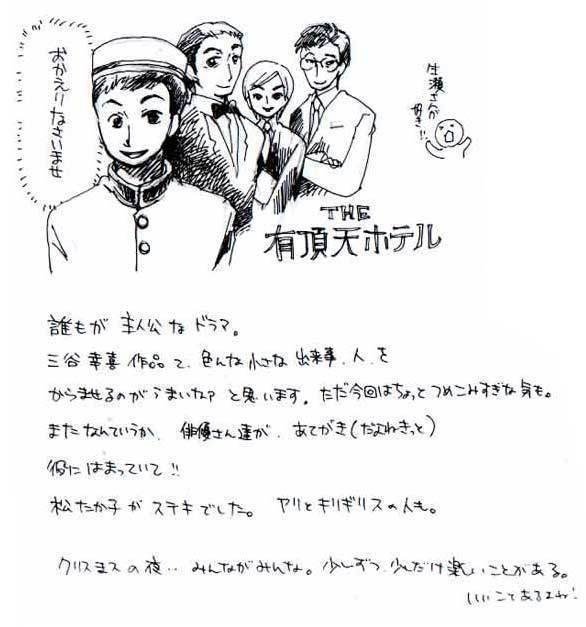 おかえりなさいませ
生瀬さんが
好き!!
THE
有頂天ホテル
誰もが 主人公な ドラマ。
三谷幸喜 作品て、色んな小さな 出来事、人、を
からませるのがうまいなァ と思います。ただ今回はちょっと つめこみすぎな気も。
またなんていうか、俳優さん達が、あてがき(だよねきっと)
役に はまっていて!!
松たか子が ステキでした。 ヤリとキリギリスの人も。
クリスマスの夜‥ みんながみんな。少しずつ、少しだけ楽しいことがある。
いいことあるよね!